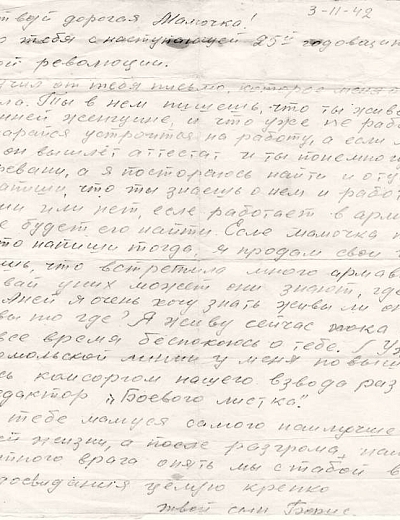 3-11-42
твуй дорогая Мамочка!
о тебя с наступающей 25ой годовщин
ой революции.
чил от тебя письмо, которое меня
ла. Ты в нем пишешь, что ты живе
ней женщине, и что уже не раб
арайся устроится на работу, а если
он вышлет аттестат и ты понемно
ревани, а я постараюсь найти и
апиши, что ты знаешь о нем и работ
ии или нет, если работает в арм
е будет его найти. Если мамочка
то напиши тогда я продам свои
шь, что встретила много армав
вай у них может они знают, где
Аней я очень хочу знать живы ли он
вы то где? Я живу сейчас пока
все время беспокоюсь о тебе.
омольской линии у меня повыш
сь комсоргом нашего взвода раз
едактор "Боевого листка".
тебе мамуся самого наилучше
ей жизни, а после разгрома
тного врага опять мы с тобой в
досвидания целую крепко
твой сын Борис.